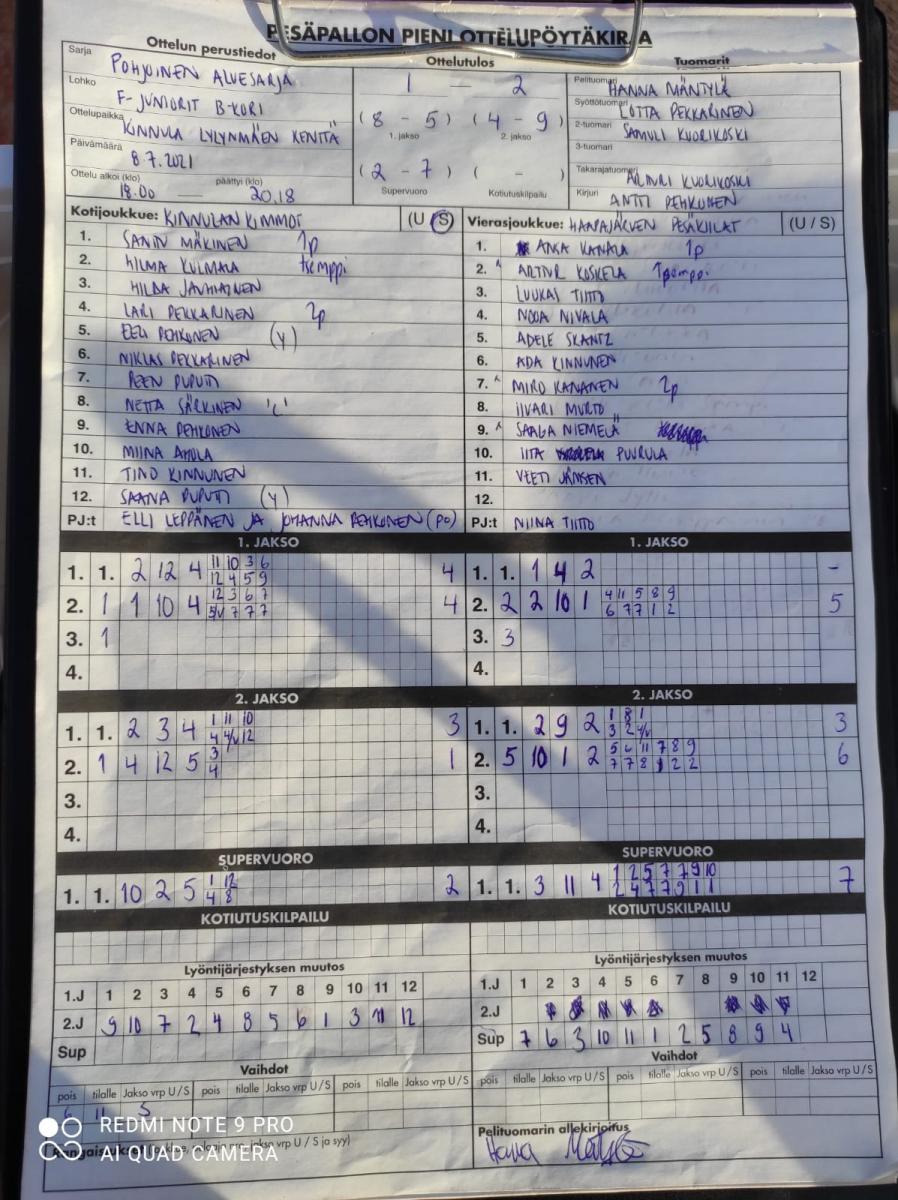 PESÄPALLON PIENI OTTELUPÖYTÄKIRJA
Ottelun perustiedot Ottelutulos Tuomarit
Sarja POHJOINEN ALUESARJA
Lohko F-JUNIORIT B-KORI
Ottelupaikka KINNULA LYLYNMÄEN KENTTÄ
Päivämäärä 8.7.2021
Ottelu alkoi (klo) 18.00 päättyi (klo) 20.18
1 — 2
(8 - 5) (4 - 9)
1. jakso 2. jakso
(2 - 7) ( - )
Supervuoro Kotiutuskilpailu
Pelituomari HANNA MÄNTYLÄ
Syöttötuomari LOTTA PEKKARINEN
2-tuomari SAMULI KUORIKOSKI
3-tuomari
Takarajatuomari ARTTURI KUORIKOSKI
Kirjuri ANTTI PEHKONEN
Kotijoukkue: KINNULAN KIMMOT (U / S)
1. MÄKINEN 1p
2. HILMA KULMALA tsemppi
3. HILDA
4. LARI PEKKARINEN 2p
5. EELI PEHKONEN (Y)
6. NIKLAS PEKKARINEN
7. PUPUTTI
8. NETTA SÄRKINEN 'L'
9. ENNA PEHKONEN
10. MIINA AHOLA
11. TINO KINNUNEN
12. SAANA PUPUTTI (Y)
PJ:t ELLI LEPPÄNEN JA JOHANNA PEHKONEN (PO)
Vierasjoukkue: HAAPAJÄRVEN PESÄKIILAT (U / S)
1. KANALA 1p
2. ARTTUR KOSKELA
3. LUUKAS TIITTO
4. NOOA NIVALA
5. ADELE SKANTZ
6. ADA KINNUNEN
7. MIRO KANANEN 2p
8. IIVARI MURTO
9. SAAGA NIEMELÄ
10. IITA PUURULA
11. VEETI JÄNSEN
12.
PJ:t NIINA TIITTO
1. JAKSO
1. 1. 2 12 4 11 10 3 6 4
12 4 5 9
2. 1 1 10 4 12 3 6 7 4
7 7 7
3. 1
4.
1. JAKSO
1. 1. 1 4 2 -
2. 2 2 10 1 4 11 5 8 9 5
6 7 7 1 2
3. 3
4.
2. JAKSO
1. 1. 2 3 4 1 11 10 3
4 4/V 12
2. 1 4 12 5 3 1
4
3.
4.
2. JAKSO
1. 1. 2 9 2 1 8 1 3
3 2 4/V
2. 5 10 1 2 5 6 11 7 8 9 6
7 7 8 1 2 2
3.
4.
SUPERVUORO
1. 1. 10 2 5 1 12 2
4 8
SUPERVUORO
1. 1. 3 11 4 1 2 5 7 7 9 10 7
2 4 7 7 9 1 1
KOTIUTUSKILPAILU
KOTIUTUSKILPAILU
Lyöntijärjestyksen muutos
1.J 1 2 3 4 5 6 7 8 9 10 11 12
2.J 9 10 7 2 4 8 5 6 1 3 11 12
Sup
Lyöntijärjestyksen muutos
1.J 1 2 3 4 5 6 7 8 9 10 11 12
2.J
Sup 7 6 3 10 11 1 2 5 8 9 4
Vaihdot
pois tilalle Jakso vrp U / S pois tilalle Jakso vrp U / S pois tilalle Jakso vrp U / S
6 11 5
Vaihdot
pois tilalle Jakso vrp U / S pois tilalle Jakso vrp U / S pois tilalle Jakso vrp U / S
jakso vrp U / S ja syy)
Pelituomarin allekirjoitus
REDMI NOTE 9 PRO
AI QUAD CAMERA